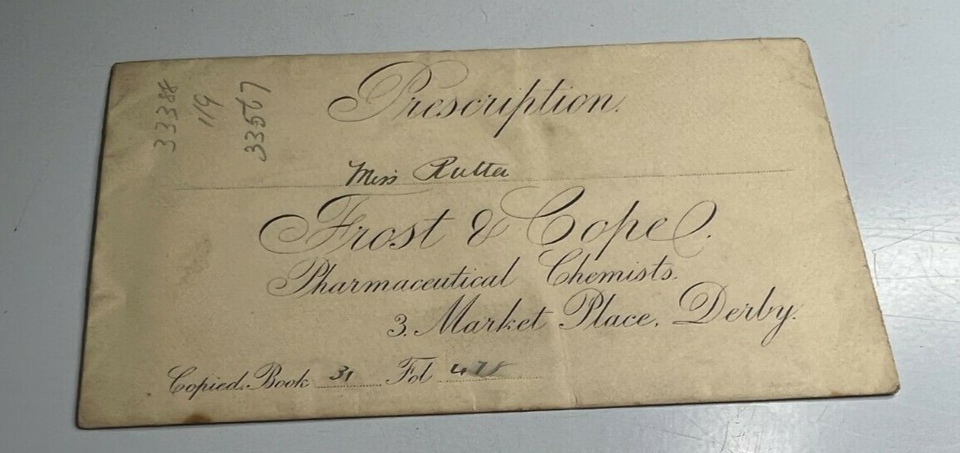 Prescription.
Miss Rutter
Frost & Cope.
Pharmaceutical Chemists.
3. Market Place. Derby.
Copied. Book 31 Fol 478
33388
119
33567